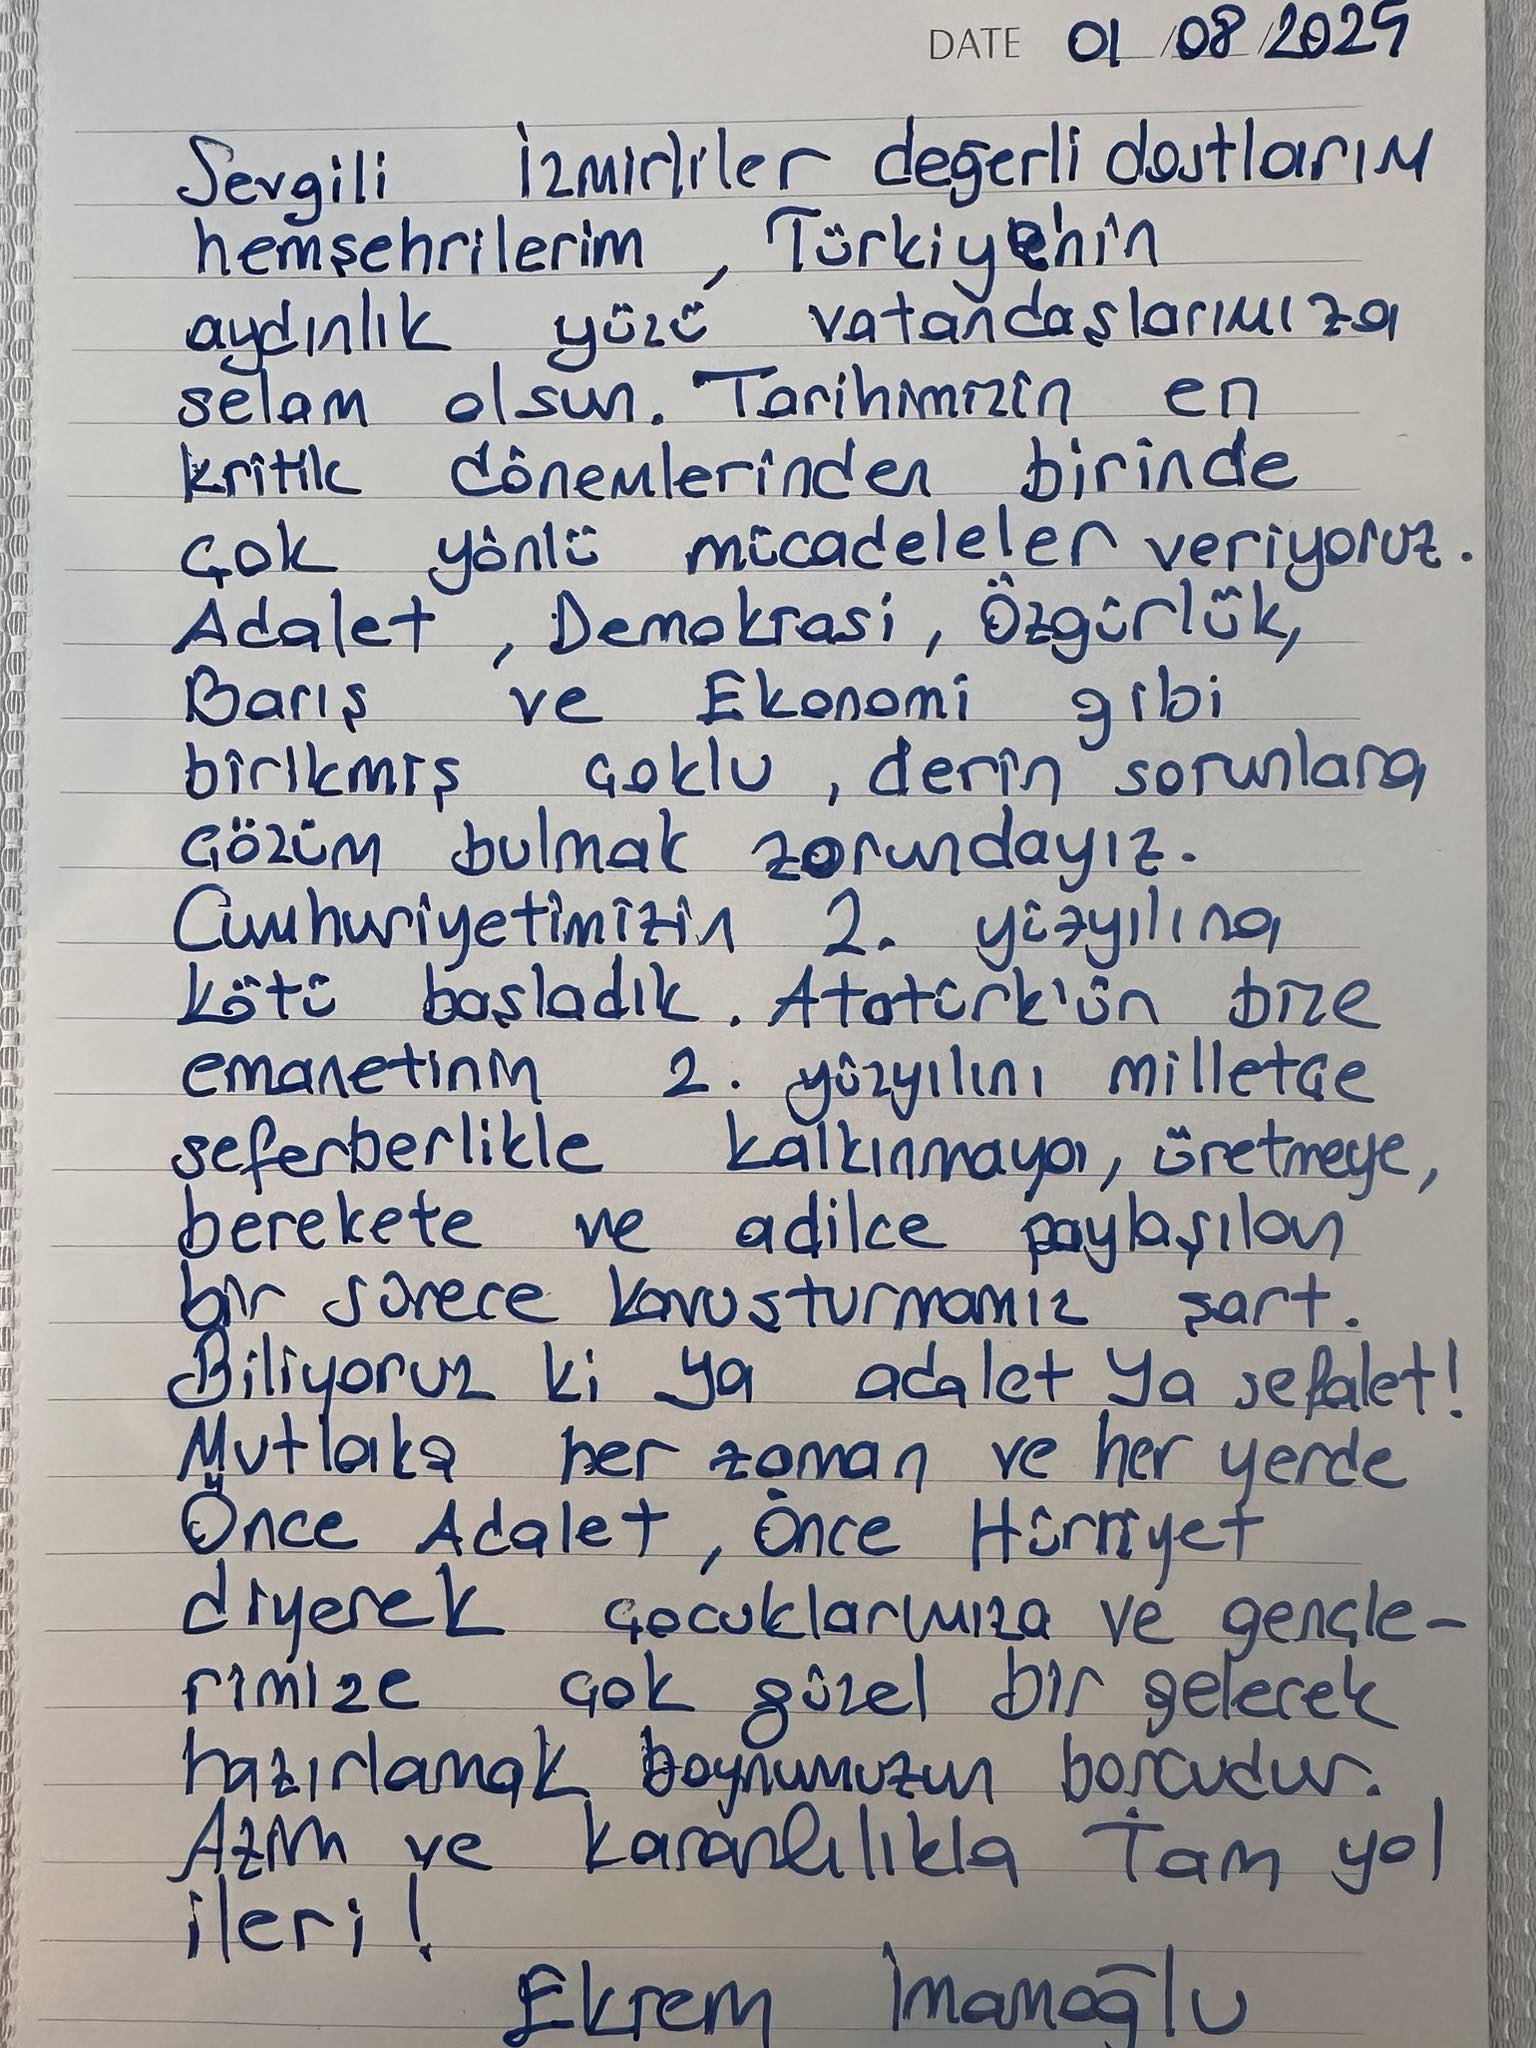 DATE 01/08/2025
Sevgili İzmirliler değerli dostlarım
hemşehrilerim, Türkiye'nin
aydınlık yüzü vatandaşlarımıza
selam olsun. Tarihimizin en
kritik dönemlerinden birinde
çok yönlü mücadeleler veriyoruz.
Adalet, Demokrasi, Özgürlük,
Barış ve Ekonomi gibi
birikmiş çoklu, derin sorunlara
çözüm bulmak zorundayız.
Cumhuriyetimizin 2. yüzyılına
kötü başladık. Atatürk'ün bize
emanetinin 2. yüzyılını milletçe
seferberlikle kalkınmaya, üretmeye,
berekete ve adilce paylaşılan
bir sürece kavuşturmamız şart.
Biliyoruz ki ya adalet ya sefalet!
Mutlaka her zaman ve her yerde
Önce Adalet, Önce Hürriyet
diyerek çocuklarımıza ve gençle-
rimize çok güzel bir gelecek
hazırlamak boynumuzun borcudur.
Azim ve kararlılıkla Tam yol
ileri!
Ekrem İmamoğlu